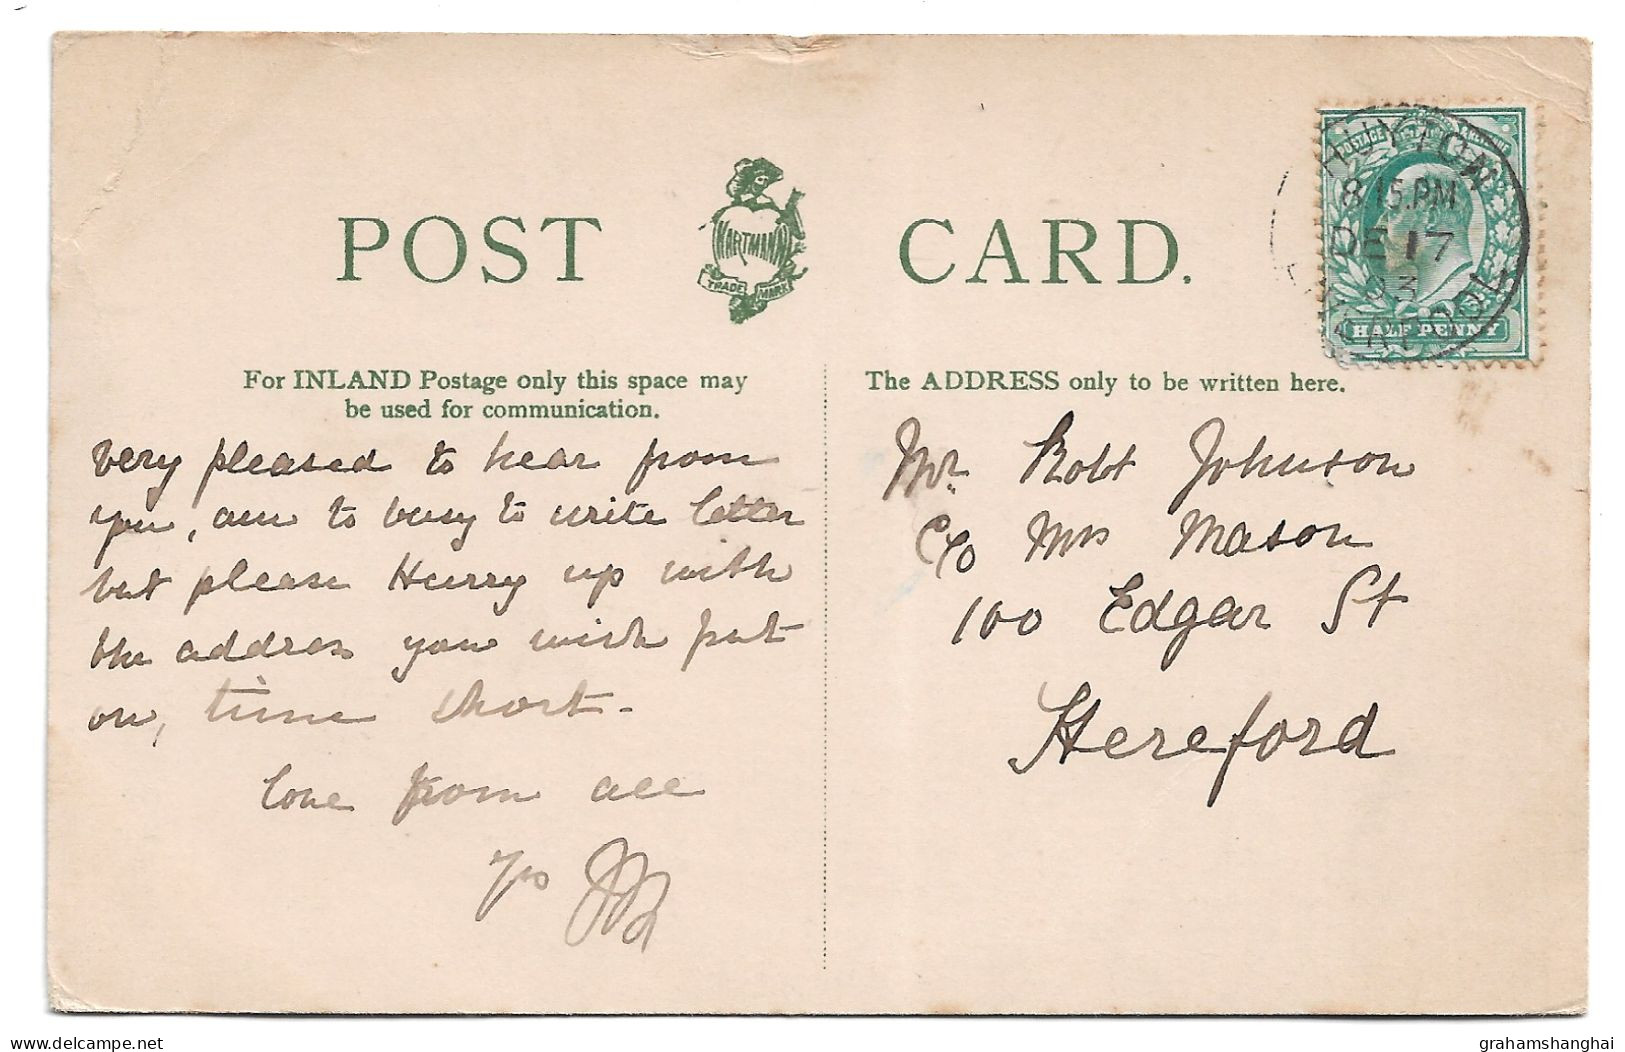 POST CARD.
HARTMANN
TRADE MARK
POSTAGE REVENUE
HUYTON
8.15.PM
DE 17
03
LIVERPOOL
HALF PENNY
For INLAND Postage only this space may
be used for communication.
Very pleased to hear from
you, am to busy to write letter
but please Hurry up with
the address you wish put
on, time short -
love from all
Yrs
The ADDRESS only to be written here.
Mr. Robt Johnson
C/o Mrs Mason
100 Edgar St
Hereford
grahamshanghai